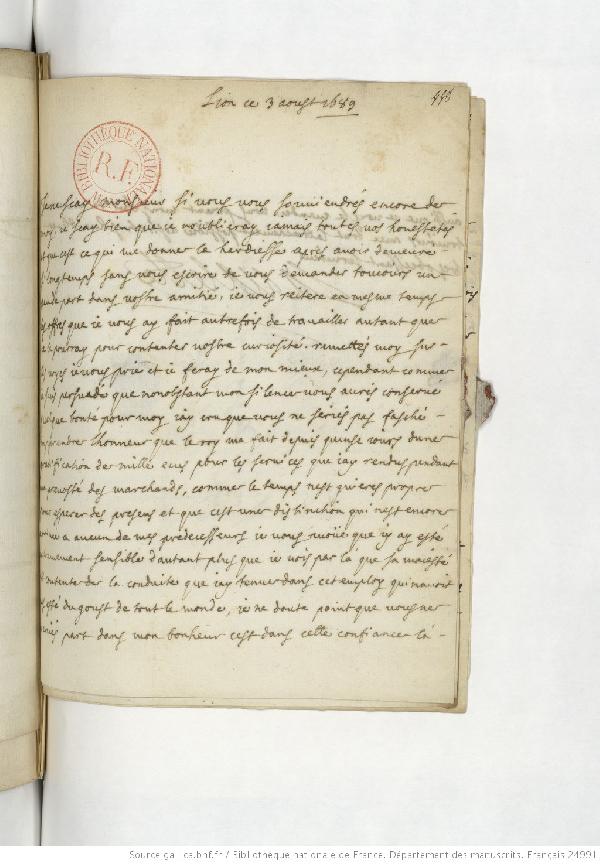 Lion ce 3 aoust 1689
BIBLIOTHEQUE NATIONALE
R.F.
Je ne scay monsieur si vous vous souviendrés encore de
moy ie scay bien que ie noublieray iamais toutes vos honestetés
et que cest ce qui me donne la hardiesse apres avoir demeuré
longtemps sans vous escrire de vous demander tousiours un
part dans vostre amitié, ie vous reitere en mesme temps
les offres que ie vous ay fait autrefois de travailler autant que
ie pourray pour contenter vostre curiosité. remettés moy sur
les voyes ie vous prie et ie feray de mon mieux, cependant comme
ie suis persuadé que nonobstant mon silence vous aurés conservé
quelque bonté pour moy iay cru que vous ne seriés pas fasché
dapprendre lhonneur que le roy ma fait depuis quinse iours dune
gratification de mille escus pour les services que iay rendus pendant
ma prevosté des marchands, comme le temps nest guieres propre
pour esperer des presens et que cest une distinction qui nest encore
a aucun de mes predecesseurs ie vous avoüe que iy ay esté
sensible dautant plus que ie vois par là que sa maiesté
est contente de la conduite que iay tenue dans cet employ qui
du goust de tout le monde, ie ne doute point que vous ne
part dans mon bonheur cest dans cette confiance là
Source gallica.bnf.fr / Bibliothèque nationale de France. Département des manuscrits. Français 24991